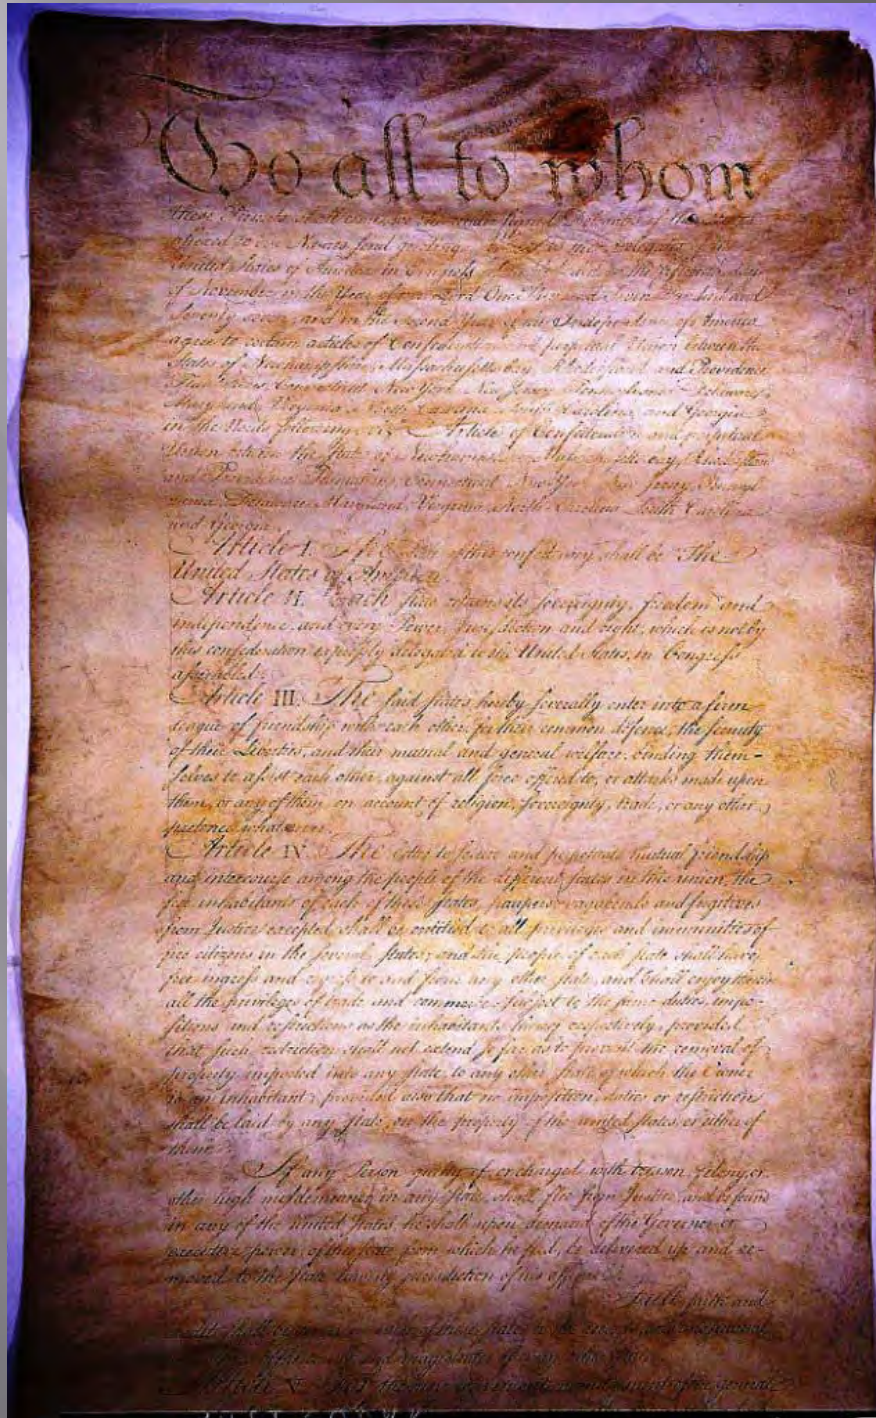 To all to whom
these Presents shall come, we the under signed Delegates of the States
affixed to our Names send greeting. Whereas the Delegates of the
United States of America in Congress assembled did on the fifteenth day
of November in the Year of our Lord One Thousand Seven Hundred and
Seventy seven, and in the Second Year of the Independence of America
agree to certain articles of Confederation and perpetual Union between the
States of Newhampshire, Massachusetts-bay, Rhodeisland and Providence
Plantations, Connecticut, New York, New Jersey, Pennsylvania, Delaware,
Maryland, Virginia, North Carolina, South Carolina, and Georgia
in the Words following, viz. Articles of Confederation and perpetual
Union between the States of Newhampshire, Massachusetts-bay, Rhodeisland
and Providence Plantations, Connecticut, New York, New Jersey, Pennsyl
vania, Delaware, Maryland, Virginia, North Carolina, South Carolina
and Georgia.
Article I. The Stile of this confederacy shall be "The
United States of America."
Article II. Each state retains its sovereignty, freedom and
independence, and every Power, Jurisdiction and right, which is not by
this confederation expressly delegated to the United States, in Congress
assembled.
Article III. The said states hereby severally enter into a firm
league of friendship with each other, for their common defence, the security
of their Liberties, and their mutual and general welfare, binding them-
selves to assist each other, against all force offered to, or attacks made upon
them, or any of them, on account of religion, sovereignty, trade, or any other
pretence whatever.
Article IV. The better to secure and perpetuate mutual friendship
and intercourse among the people of the different states in this union, the
free inhabitants of each of these states, paupers, vagabonds and fugitives
from Justice excepted, shall be entitled to all privileges and immunities of
free citizens in the several states; and the people of each state shall have
free ingress and regress to and from any other state, and shall enjoy therein
all the privileges of trade and commerce, subject to the same duties, impo-
sitions and restrictions as the inhabitants thereof respectively, provided
that such restriction shall not extend so far as to prevent the removal of
property imported into any state, to any other state of which the Owner
is an inhabitant; provided also that no imposition, duties or restriction
shall be laid by any state, on the property of the united states, or either of
them.
If any Person guilty of or charged with treason, felony, or
other high misdemeanor in any state, shall flee from Justice, and be found
in any of the united states, he shall upon demand of the Governor or
executive power, of the state from which he fled, be delivered up and re-
moved to the state having jurisdiction of his offence.
Full faith and
credit shall be given in each of these states to the records, acts and judicial
of the courts and magistrates of every other state.
Article V. For the more convenient management of the general